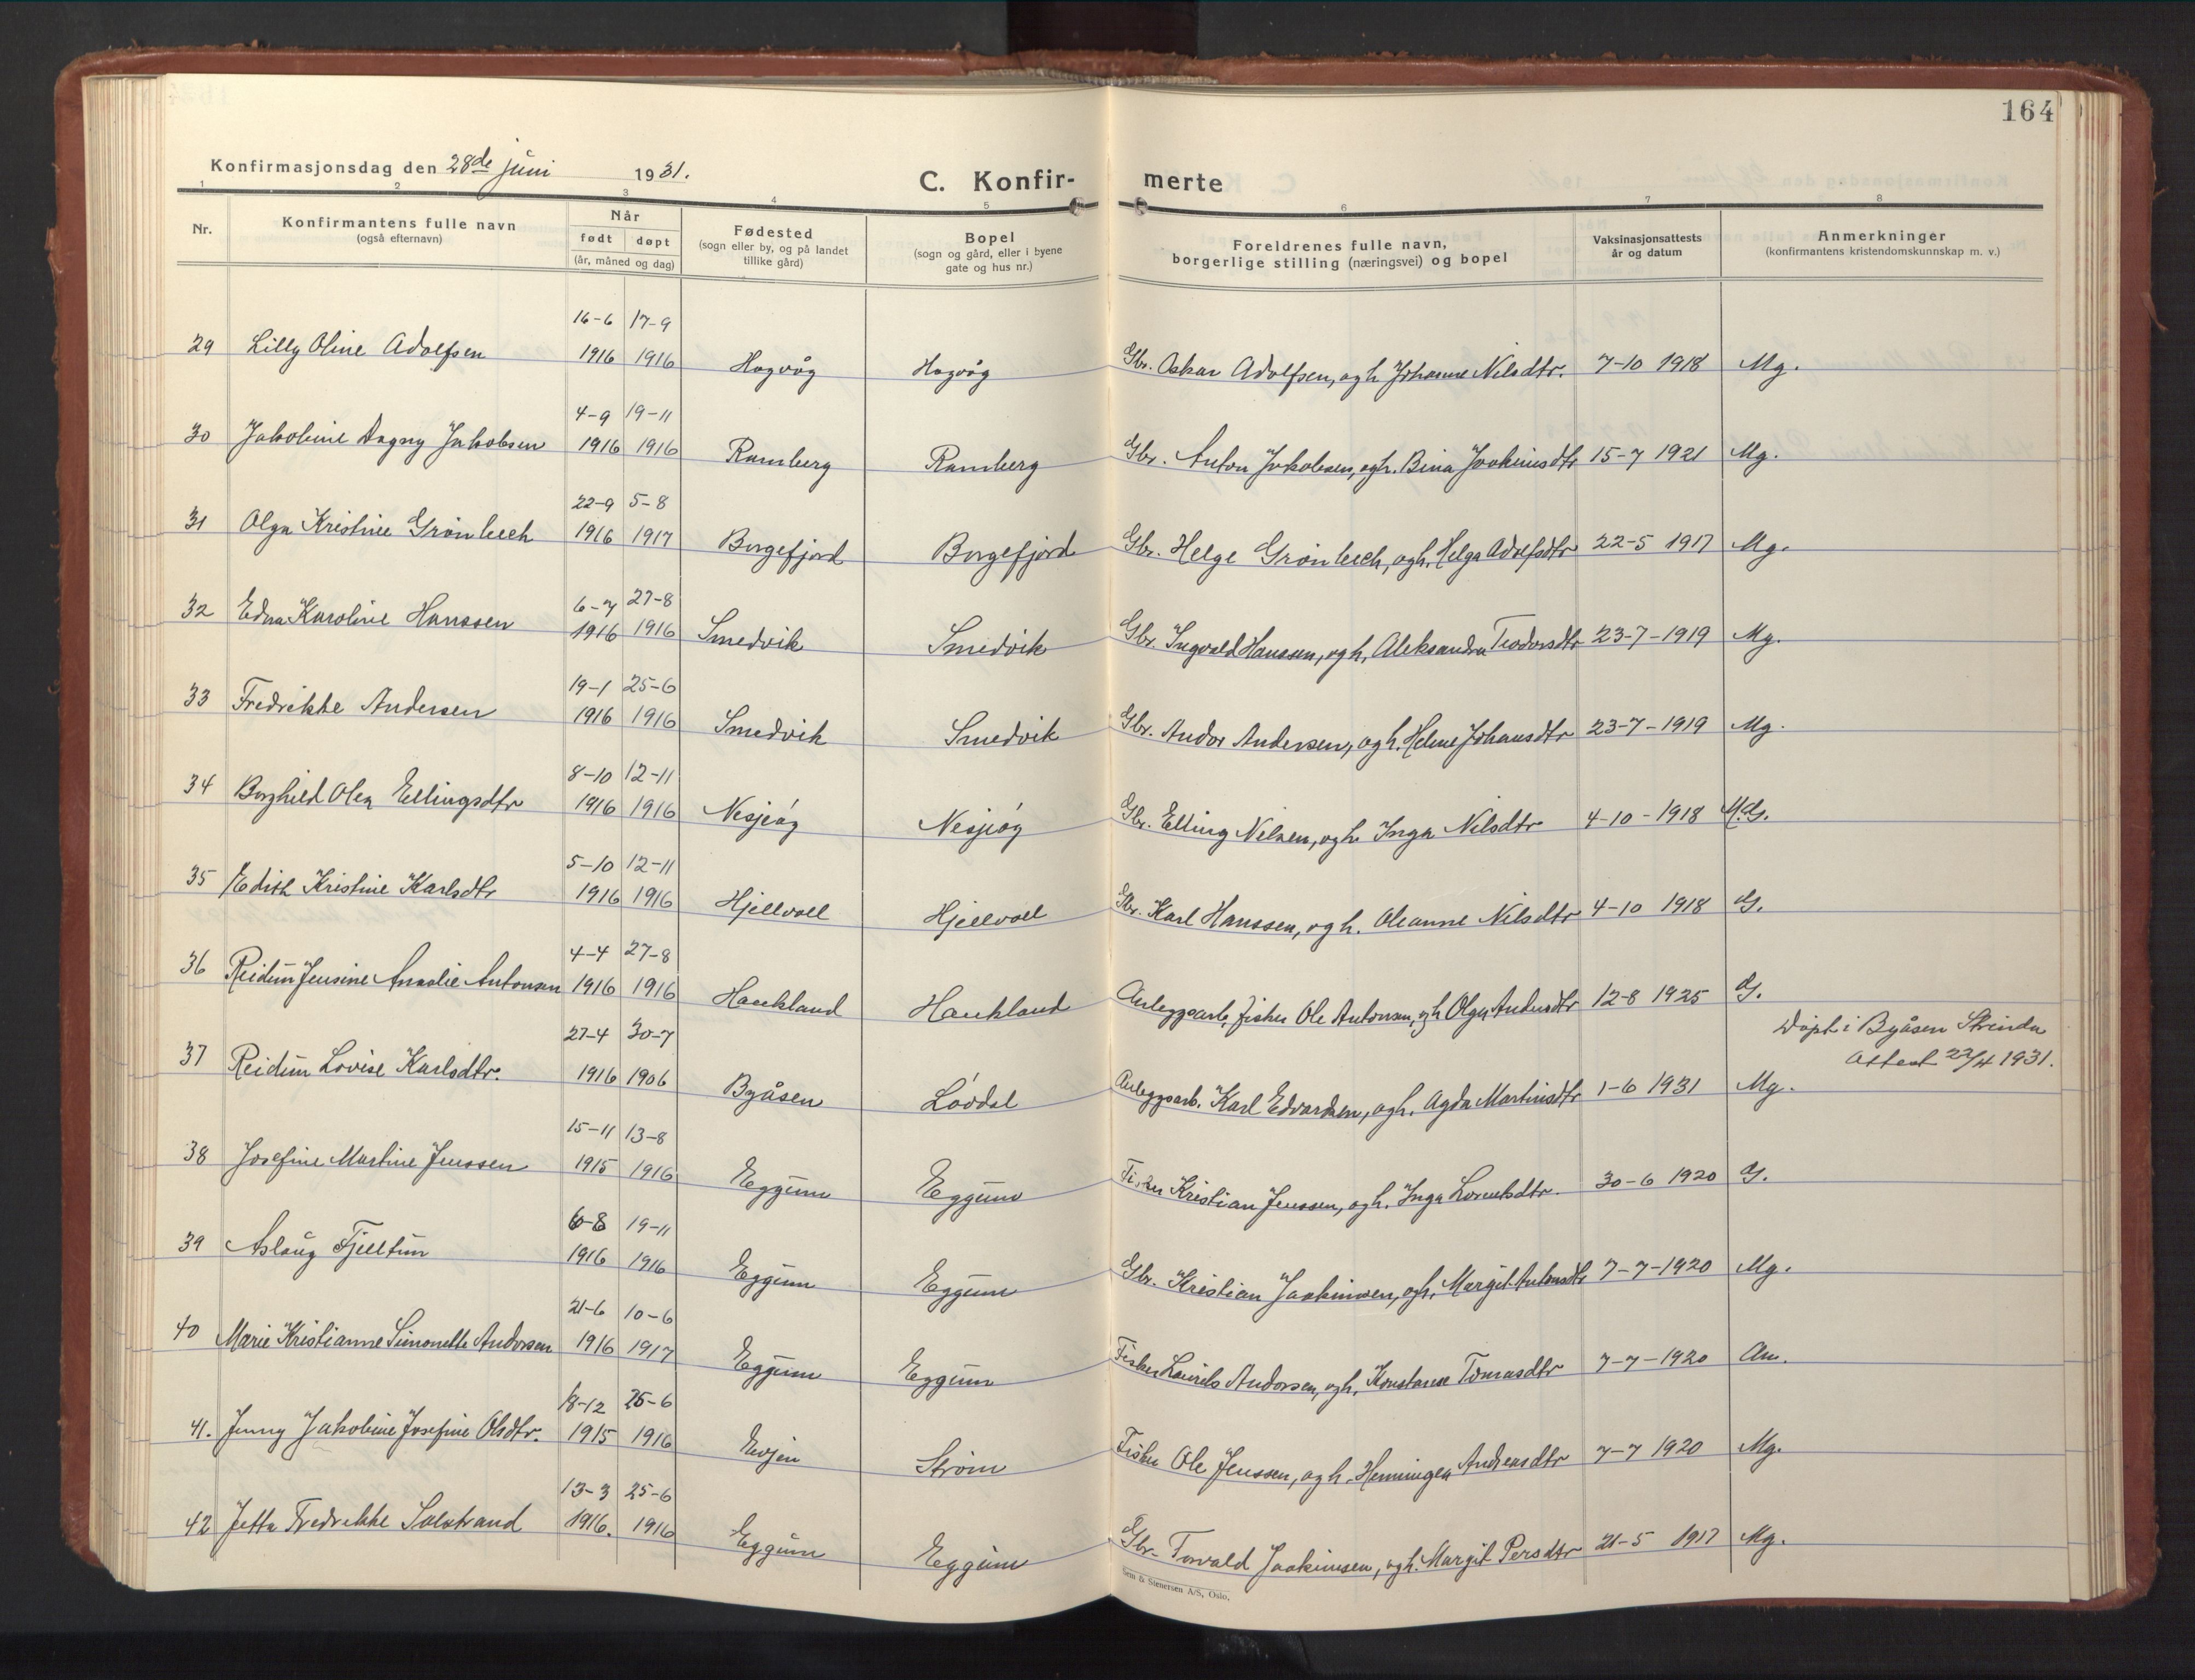 164
Konfirmasjonsdag den 28de juni 1931.
C. Konfir- merte
1 2 3 4 5 6 7 8
Nr.
Konfirmantens fulle navn
(også efternavn)
Når
født døpt
(år, måned og dag)
Fødested
(sogn eller by, og på landet
tillike gård)
Bopel
(sogn og gård, eller i byene
gate og hus nr.)
Foreldrenes fulle navn,
borgerlige stilling (næringsvei) og bopel
Vaksinasjonsattests
år og datum
Anmerkninger
(konfirmantens kristendomskunnskap m. v.)
16-6 17-9
29 Lilly Oline Adolfsen 1916 1916 Hagvåg Hagvåg Gbr. Oskar Adolfsen, og h. Johanne Nilsdtr. 7-10 1918 Mg.
4-9 19-11
30 Jakobine Dagny Jakobsen 1916 1916 Ramberg Ramberg Gbr. Anton Jakobsen, og h. Bina Joakimsdtr 15-7 1921 Mg.
22-9 5-8
31 Olga Kristine Grønbech 1916 1917 Borgefjord Borgefjord Gbr. Helge Grønbech, og h. Helga Adolfsdtr 22-5 1917 Mg.
6-7 27-8
32 Edna Karoline Hanssen 1916 1916 Smedvik Smedvik Gbr. Ingvald Hanssen, og h. Aleksandra Teodorsdtr 23-7-1919 Mg.
19-1 25-6
33 Fredrikke Andersen 1916 1916 Smedvik Smedvik Gbr. Andor Andersen, og h. Helene Johansdtr 23-7-1919 Mg.
8-10 12-11
34 Borghild Olea Ellingsdtr 1916 1916 Nesjeøy Nesjeøy Gbr. Elling Nilsen, og h. Inga Nilsdtr 4-10-1918 M.G.
5-10 12-11
35 Edith Kristine Karlsdtr 1916 1916 Hjellvoll Hjellvoll Gbr. Karl Hanssen, og h. Oleanne Nilsdtr 4-10 1918 G.
4-4 27-8
36 Reidun Jensine Amalie Antonsen 1916 1916 Haukland Haukland Anleggsarb., fisker Ole Antonsen, og h. Olga Andersdtr 12-8 1925 G.
Døpt i Byåsen Strinda
Attest 22/4 1931.
27-4 30-7
37 Reidun Lovise Karlsdtr. 1916 1906 Byåsen Løvdal Anleggsarb. Karl Edvardsen, og h. Agda Martinsdtr 1-6 1931 Mg.
15-11 13-8
38 Josefine Martine Jenssen 1915 1916 Eggum Eggum Fisker Kristian Jenssen, og h. Inga Lorentsdtr. 30-6 1920 G.
6-8 19-11
39 Aslaug Fjelltun 1916 1916 Eggum Eggum Gbr. Kristian Joakimsen, og h. Margit Antonsdtr 7-7-1920 Mg.
21-6 10-6
40 Marie Kristianne Simonette Andorsen 1916 1917 Eggum Eggum Fisker Laurits Andorsen, og h. Konstanse Tomasdtr 7-7-1920 An.
18-12 25-6
41. Jenny Jakobine Josefine Olsdtr. 1915 1916 Evjen Strøm Fisker Ole Jenssen, og h. Henningea Andreasdtr 7-7 1920 Mg.
13-3 25-6
42 Jetta Fredrikke Solstrand 1916. 1916 Eggum Eggum Gbr. Torvald Joakimsen, og h. Margit Persdtr 21-5 1917 Mg.
Sem & Stenersen A/S, Oslo.